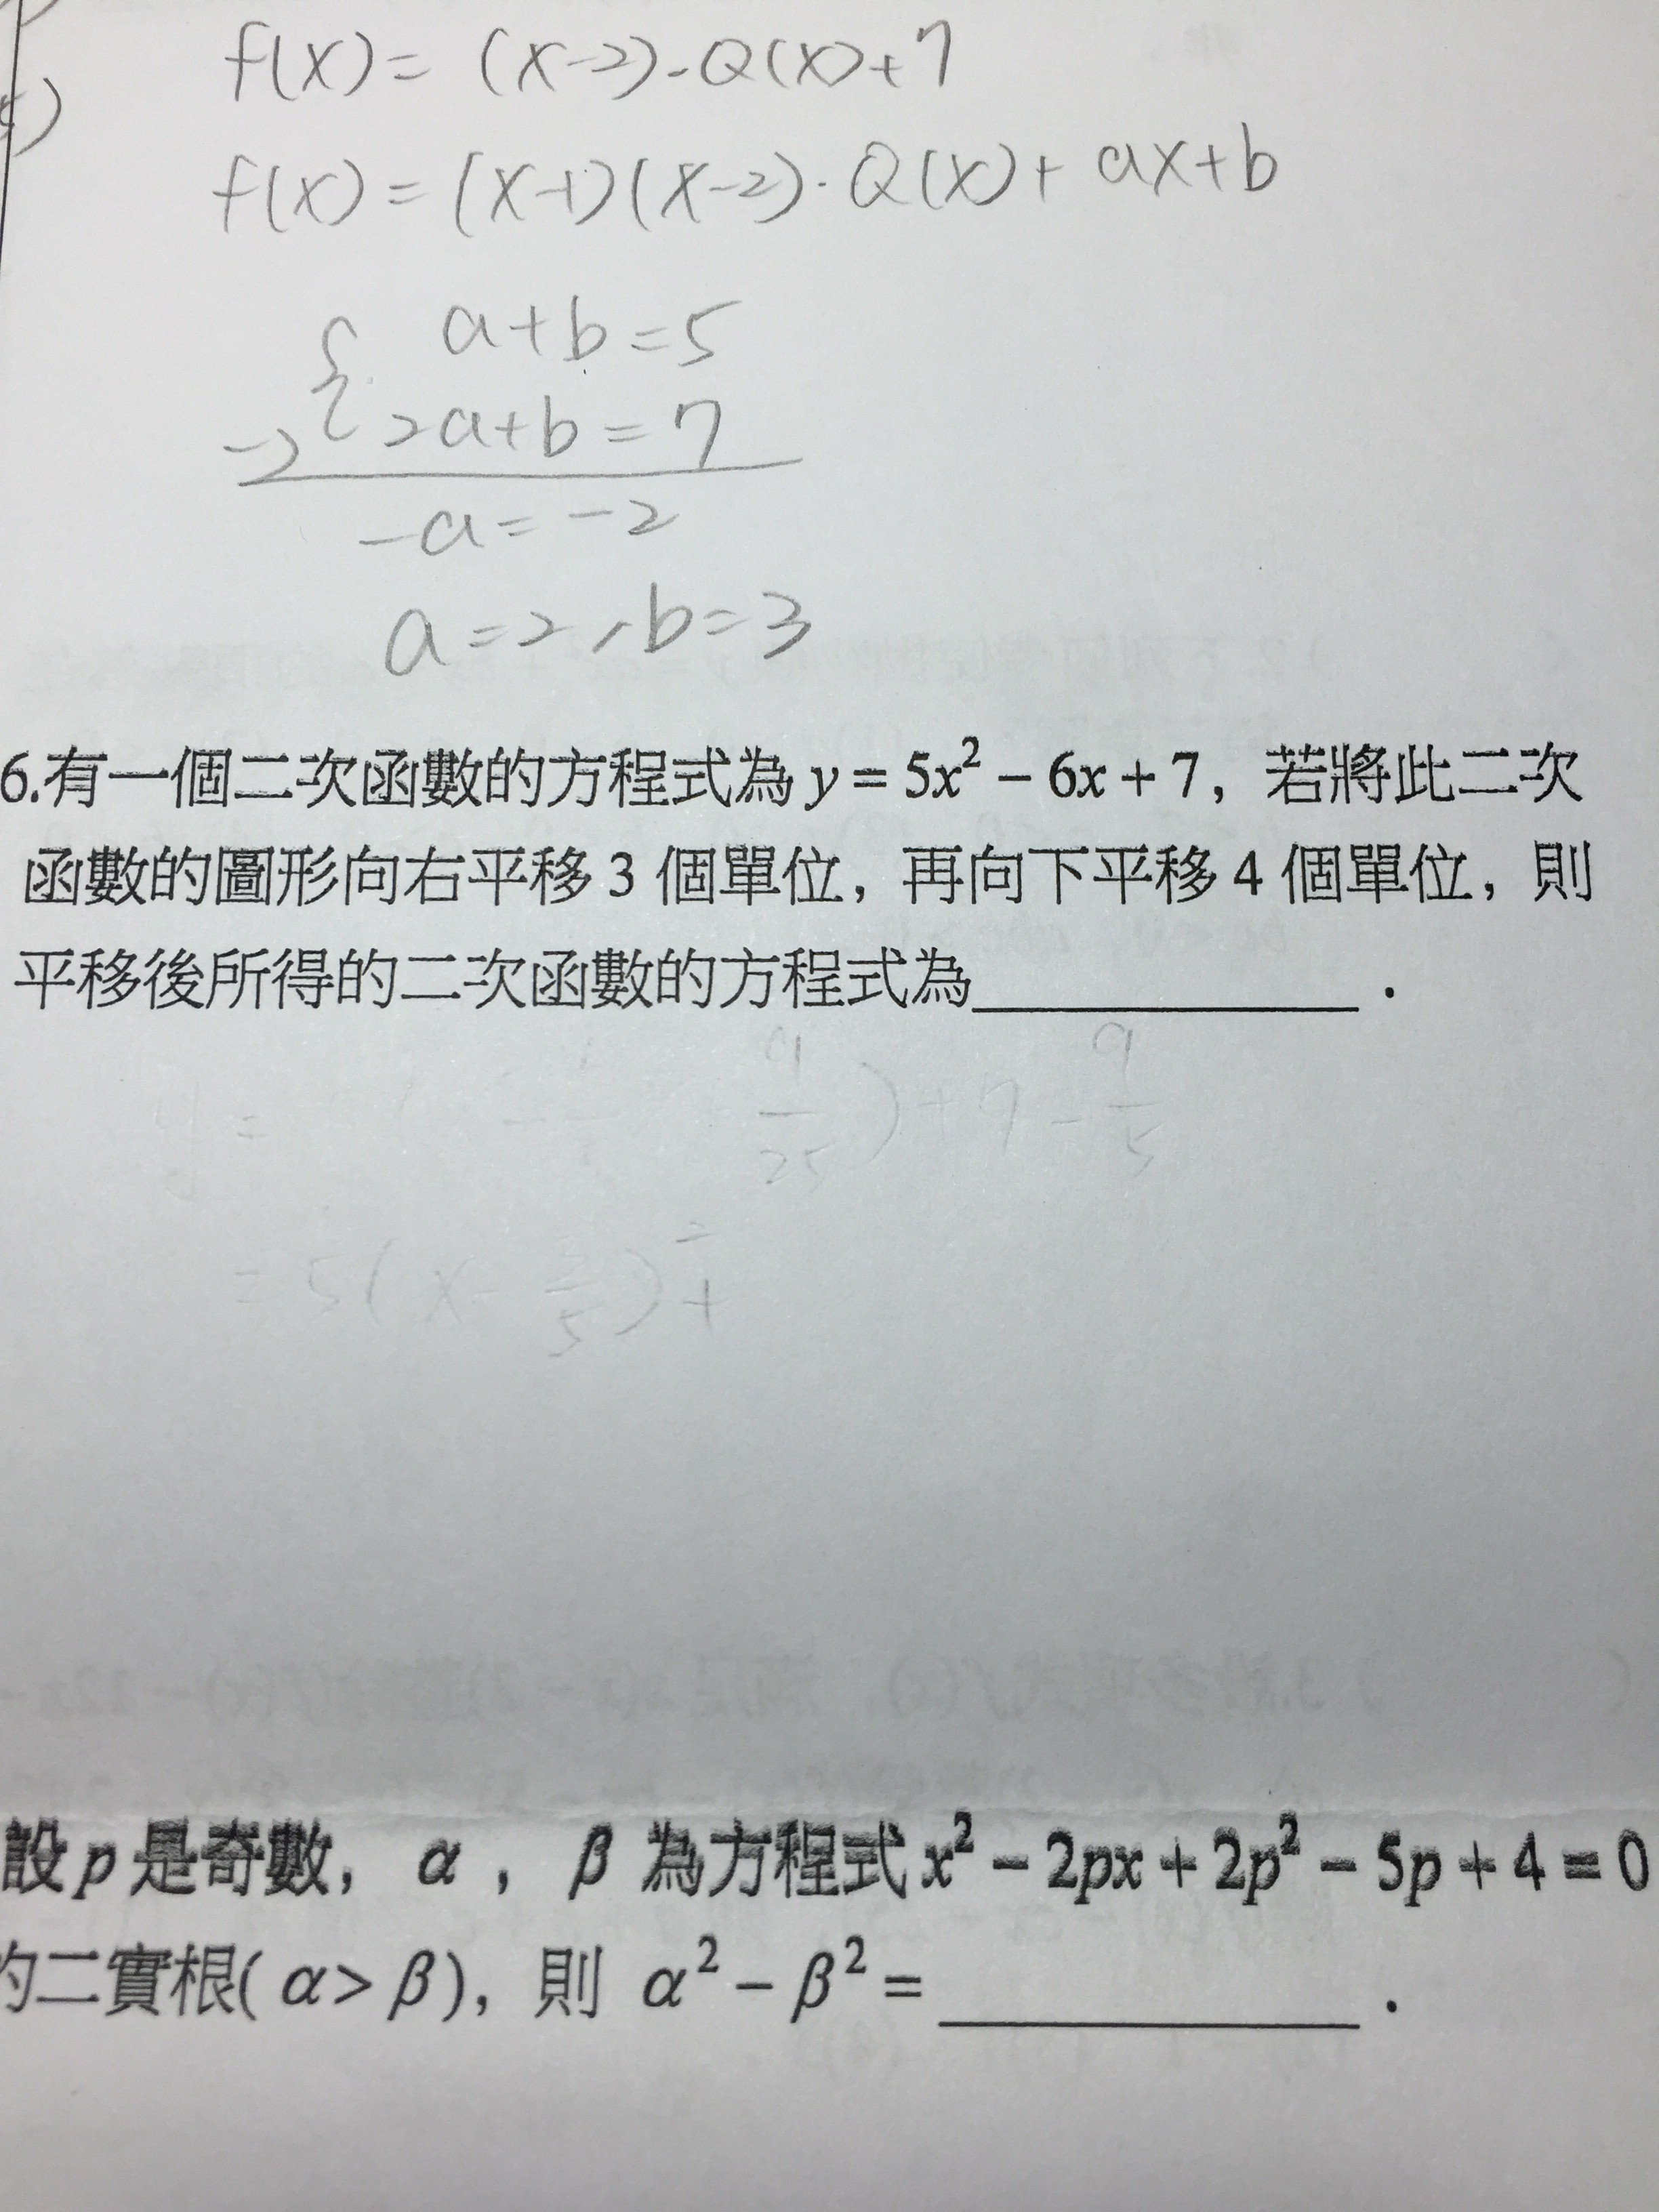 f(x) = (x-2)-Q(x)+7
f(x) = (x-1)(x-2)·Q(x)+ ax+b
a+b=5
-) 2a+b=7
-a=-2
a=2,b=3
6.有一個二次函數的方程式為 y = 5x² − 6x + 7，若將此二次
函數的圖形向右平移 3 個單位，再向下平移 4 個單位，則
平移後所得的二次函數的方程式為____________．
9/25)+7-9/5
=5(x-3/5)²+
設 p 是奇數， α ， β 為方程式 x² − 2px + 2p² − 5p + 4 = 0
的二實根( α> β )，則 α² − β² = ____________．